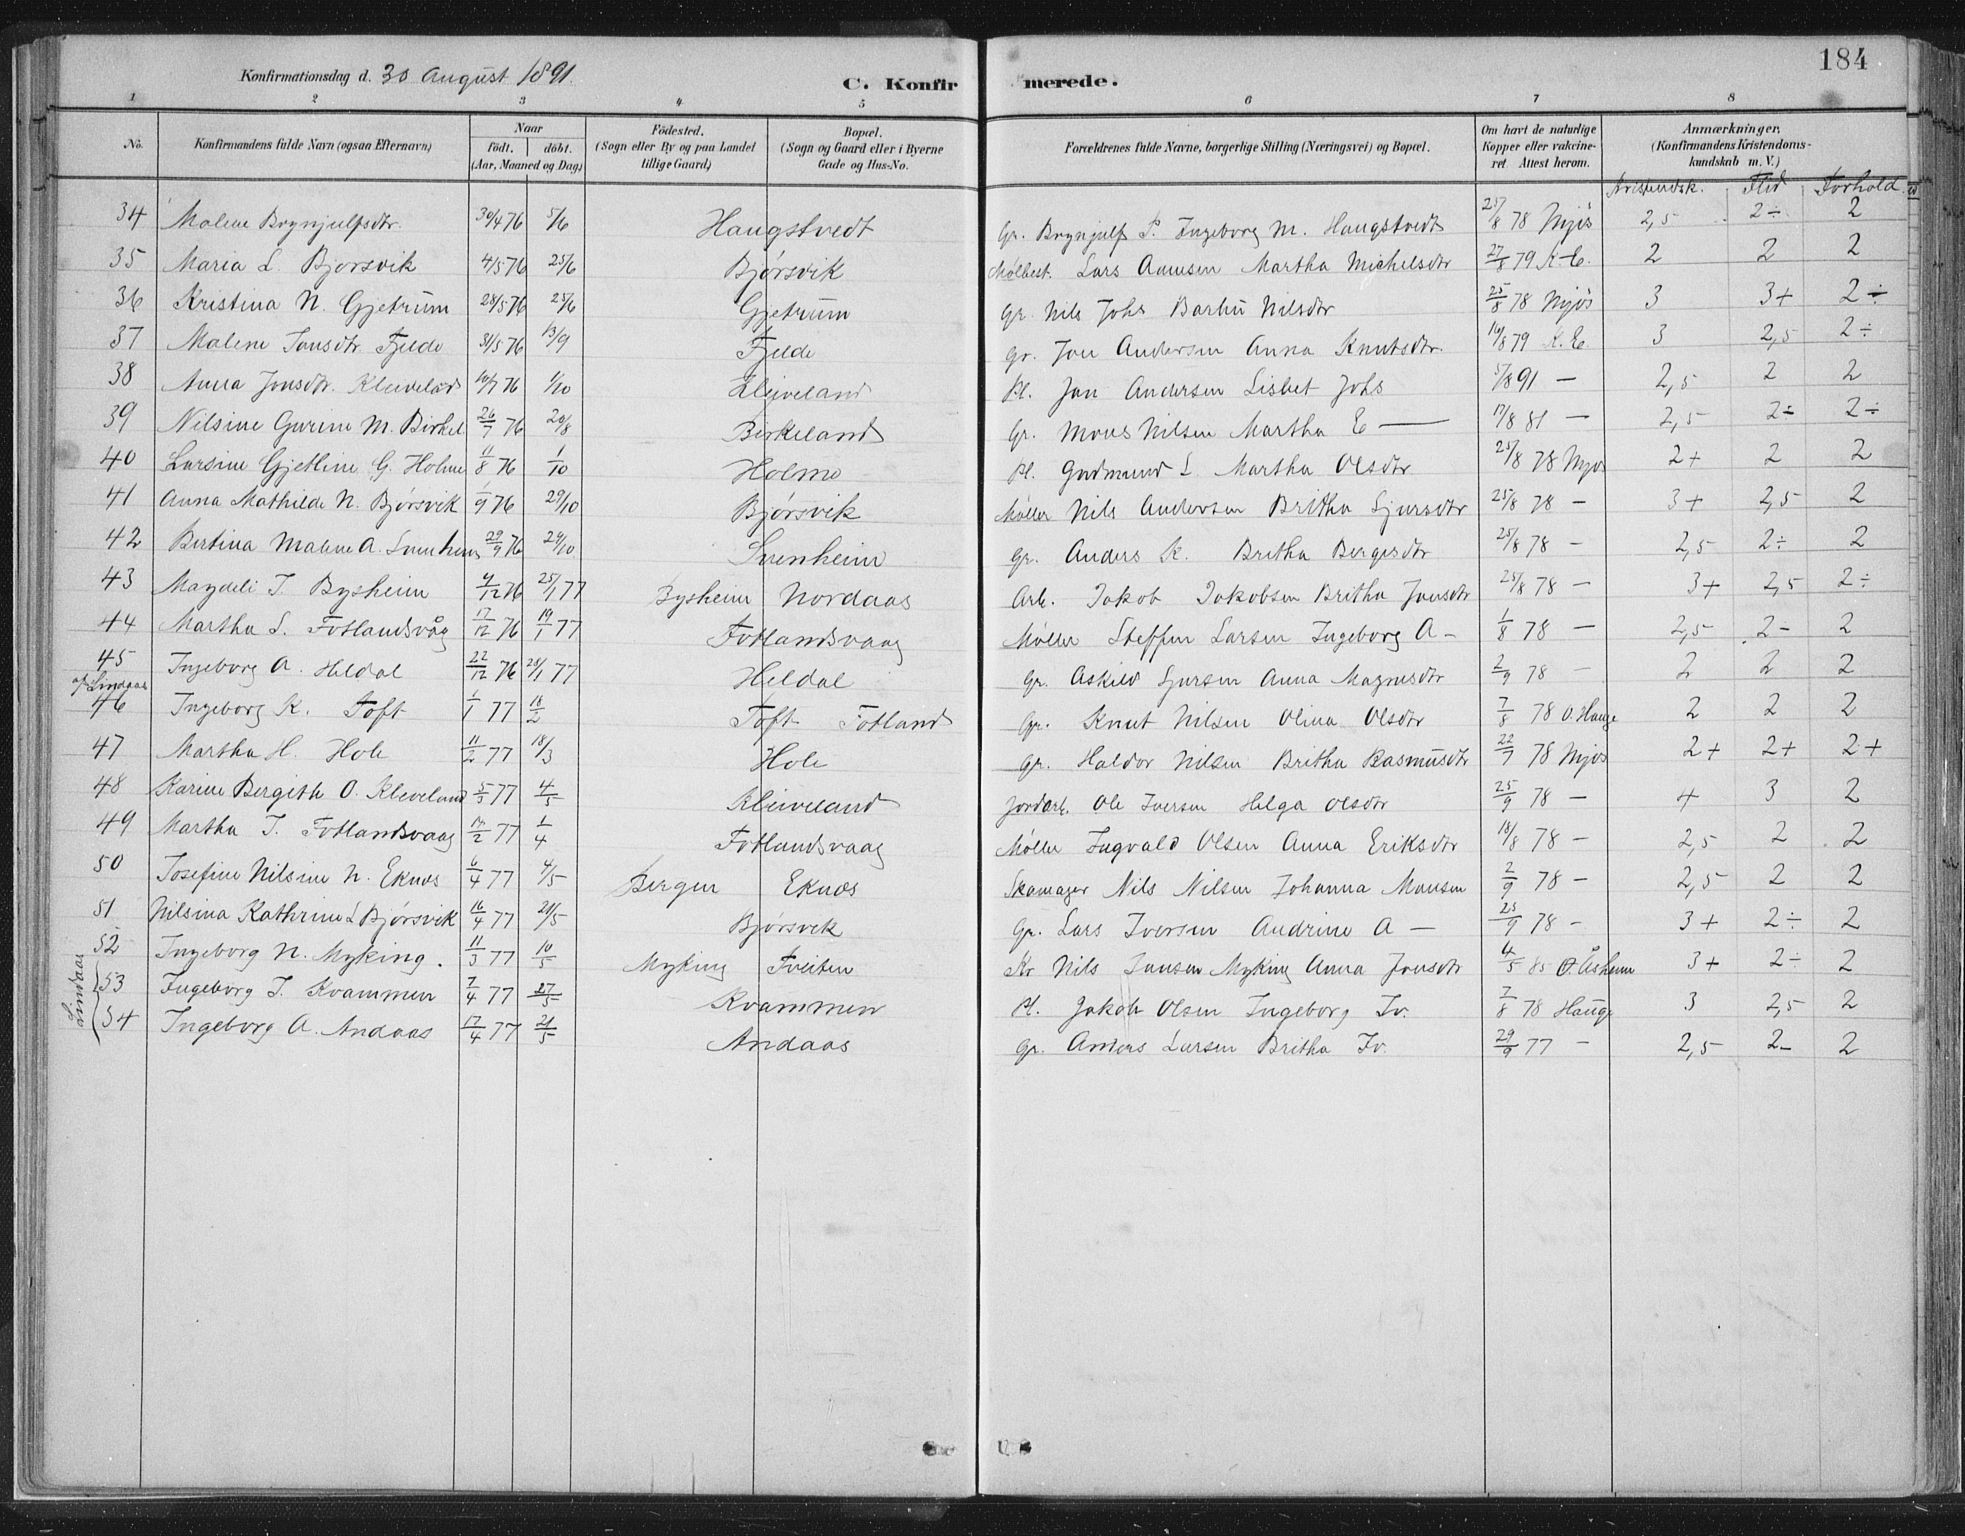 184
Konfirmationsdag d. 30 August 1891.
C. Konfirmerede.
1 2 3 4 5 6 7 8
No. Konfirmandens fulde Navn (ogsaa Efternavn) Naar født. døbt. (Aar, Maaned og Dag) Födested. (Sogn eller By og paa Landet tillige Gaard) Bopæl. (Sogn og Gaard eller i Byerne Gade og Hus-No. Forældrenes fulde Navne, borgerlige Stilling (Næringsvei) og Bopæl. Om havt de naturlige Kopper eller vakcineret. Attest herom. Anmærkninger. (Konfirmandens Kristendomskundskab m. V.)
Kristendsk. Flid Forhold
34 Malene Brynjulfsdtr. 30/4 76 5/6 Haugstvedt Gr. Brynjulf P. Ingeborg M. Haugstvedt 25/8 78 Mjøs 2,5 2÷ 2
35 Maria L. Bjorsvik 4/5 76 25/6 Bjørsvik Lars Aamsen Martha Michelsdtr 27/8 79 K.E. 2 2 2
36 Kristina N. Gjetrum 28/5 76 25/6 Gjetrum Gr. Nils Johs Barbu Nilsdtr 25/8 78 Mjøs 3 3+ 2÷
37 Malene Jonsdtr Fjelde 31/5 76 13/9 Fjelde Gr. Jon Andersen Anna Knutsdtr. 16/8 79 K.E. 3 2,5 2÷
38 Anna Jonsdtr. Kleiveland 10/7 76 1/10 Kleiveland Pl. Jon Andersen Lisbet Johs 5/8 91 — 2,5 2 2
39 Nilsine Gurine M. Birkel. 26/7 76 20/8 Birkeland Gr. Mons Nilsen Martha E — 17/8 81 — 2,5 2÷ 2÷
40 Larsine Gjetline G. Holme 11/8 76 1/10 Holme Pl. Gudmund L. Martha Olsdtr 25/8 78 Mjøs 2+ 2 2
41 Anna Mathilde N. Bjørsvik 1/9 76 29/10 Bjørsvik Møller Nils Andersen Britha Sjursdtr 25/8 78 — 3+ 2,5 2
42 Bertina Malene A. 29/9 76 29/10 Gr. Anders K. Britha Bergesdtr 25/8 78 — 2,5 2÷ 2
43 Magdeli J. Bysheim 4/12 76 25/1 77 Bysheim Nordaas Arb. Jakob Jakobsen Britha Jonsdtr 25/8 78 — 3+ 2,5 2÷
44 Martha S. Fotlandsvåg 17/12 76 19/1 77 Fotlandsvaag Møller Steffen Larsen Ingeborg A — 1/8 78 — 2,5 2- 2
45 Ingeborg A. Heldal 22/12 76 28/1 77 Heldal Gr. Askild Sjursen Anna Magnusdtr 2/9 78 — 2 2 2
af Lindaas
46 Ingeborg K. Toft 1/1 77 18/2 Toft Fotland Gr. Knut Nilsen Olina Olsdtr 7/8 78 O. Hauge 2 2 2
47 Martha H. Hole 11/2 77 18/3 Hole Gr. Haldor Nilsen Britha Rasmusdtr 22/7 78 Mjøs 2+ 2+ 2+
48 Karine Bergith O. Kleveland 5/3 77 4/5 Kleiveland Jordarb. Ole Iversen Helga Olsdtr 25/9 78 — 4 3 2
49 Martha I. Fotlandsvaag 14/2 77 1/4 Fotlandsvaag Møller Ingvald Olsen Anna Eriksdtr 18/8 78 — 2,5 2 2
50 Josefine Nilsine N. Eknes 6/4 77 4/5 Bergen Eknes Skomager Nils Nilsen Johanna Monsen 2/9 78 — 2,5 2 2
51 Nilsina Kathrine L Bjørsvik 16/4 77 21/5 Bjørsvik Gr. Lars Iversen Andrine A — 25/9 78 — 3+ 2÷ 2
52 Ingeborg N. Myking. 11/3 77 10/5 Myking Tveiten Kr Nils Jansen Myking Anna Jonsdtr 4/5 85 O. Åsheim 3+ 2÷ 2
Lindaas
53 Ingeborg J. Kvammen 7/4 77 27/5 Kvammen Pl. Jakob Olsen Ingeborg Iv. 7/8 78 Hauge 3 2,5 2
54 Ingeborg A. Andaas 17/4 77 21/5 Andaas Gr. Anders Larsen Britha Iv. 29/9 77 — 2,5 2- 2